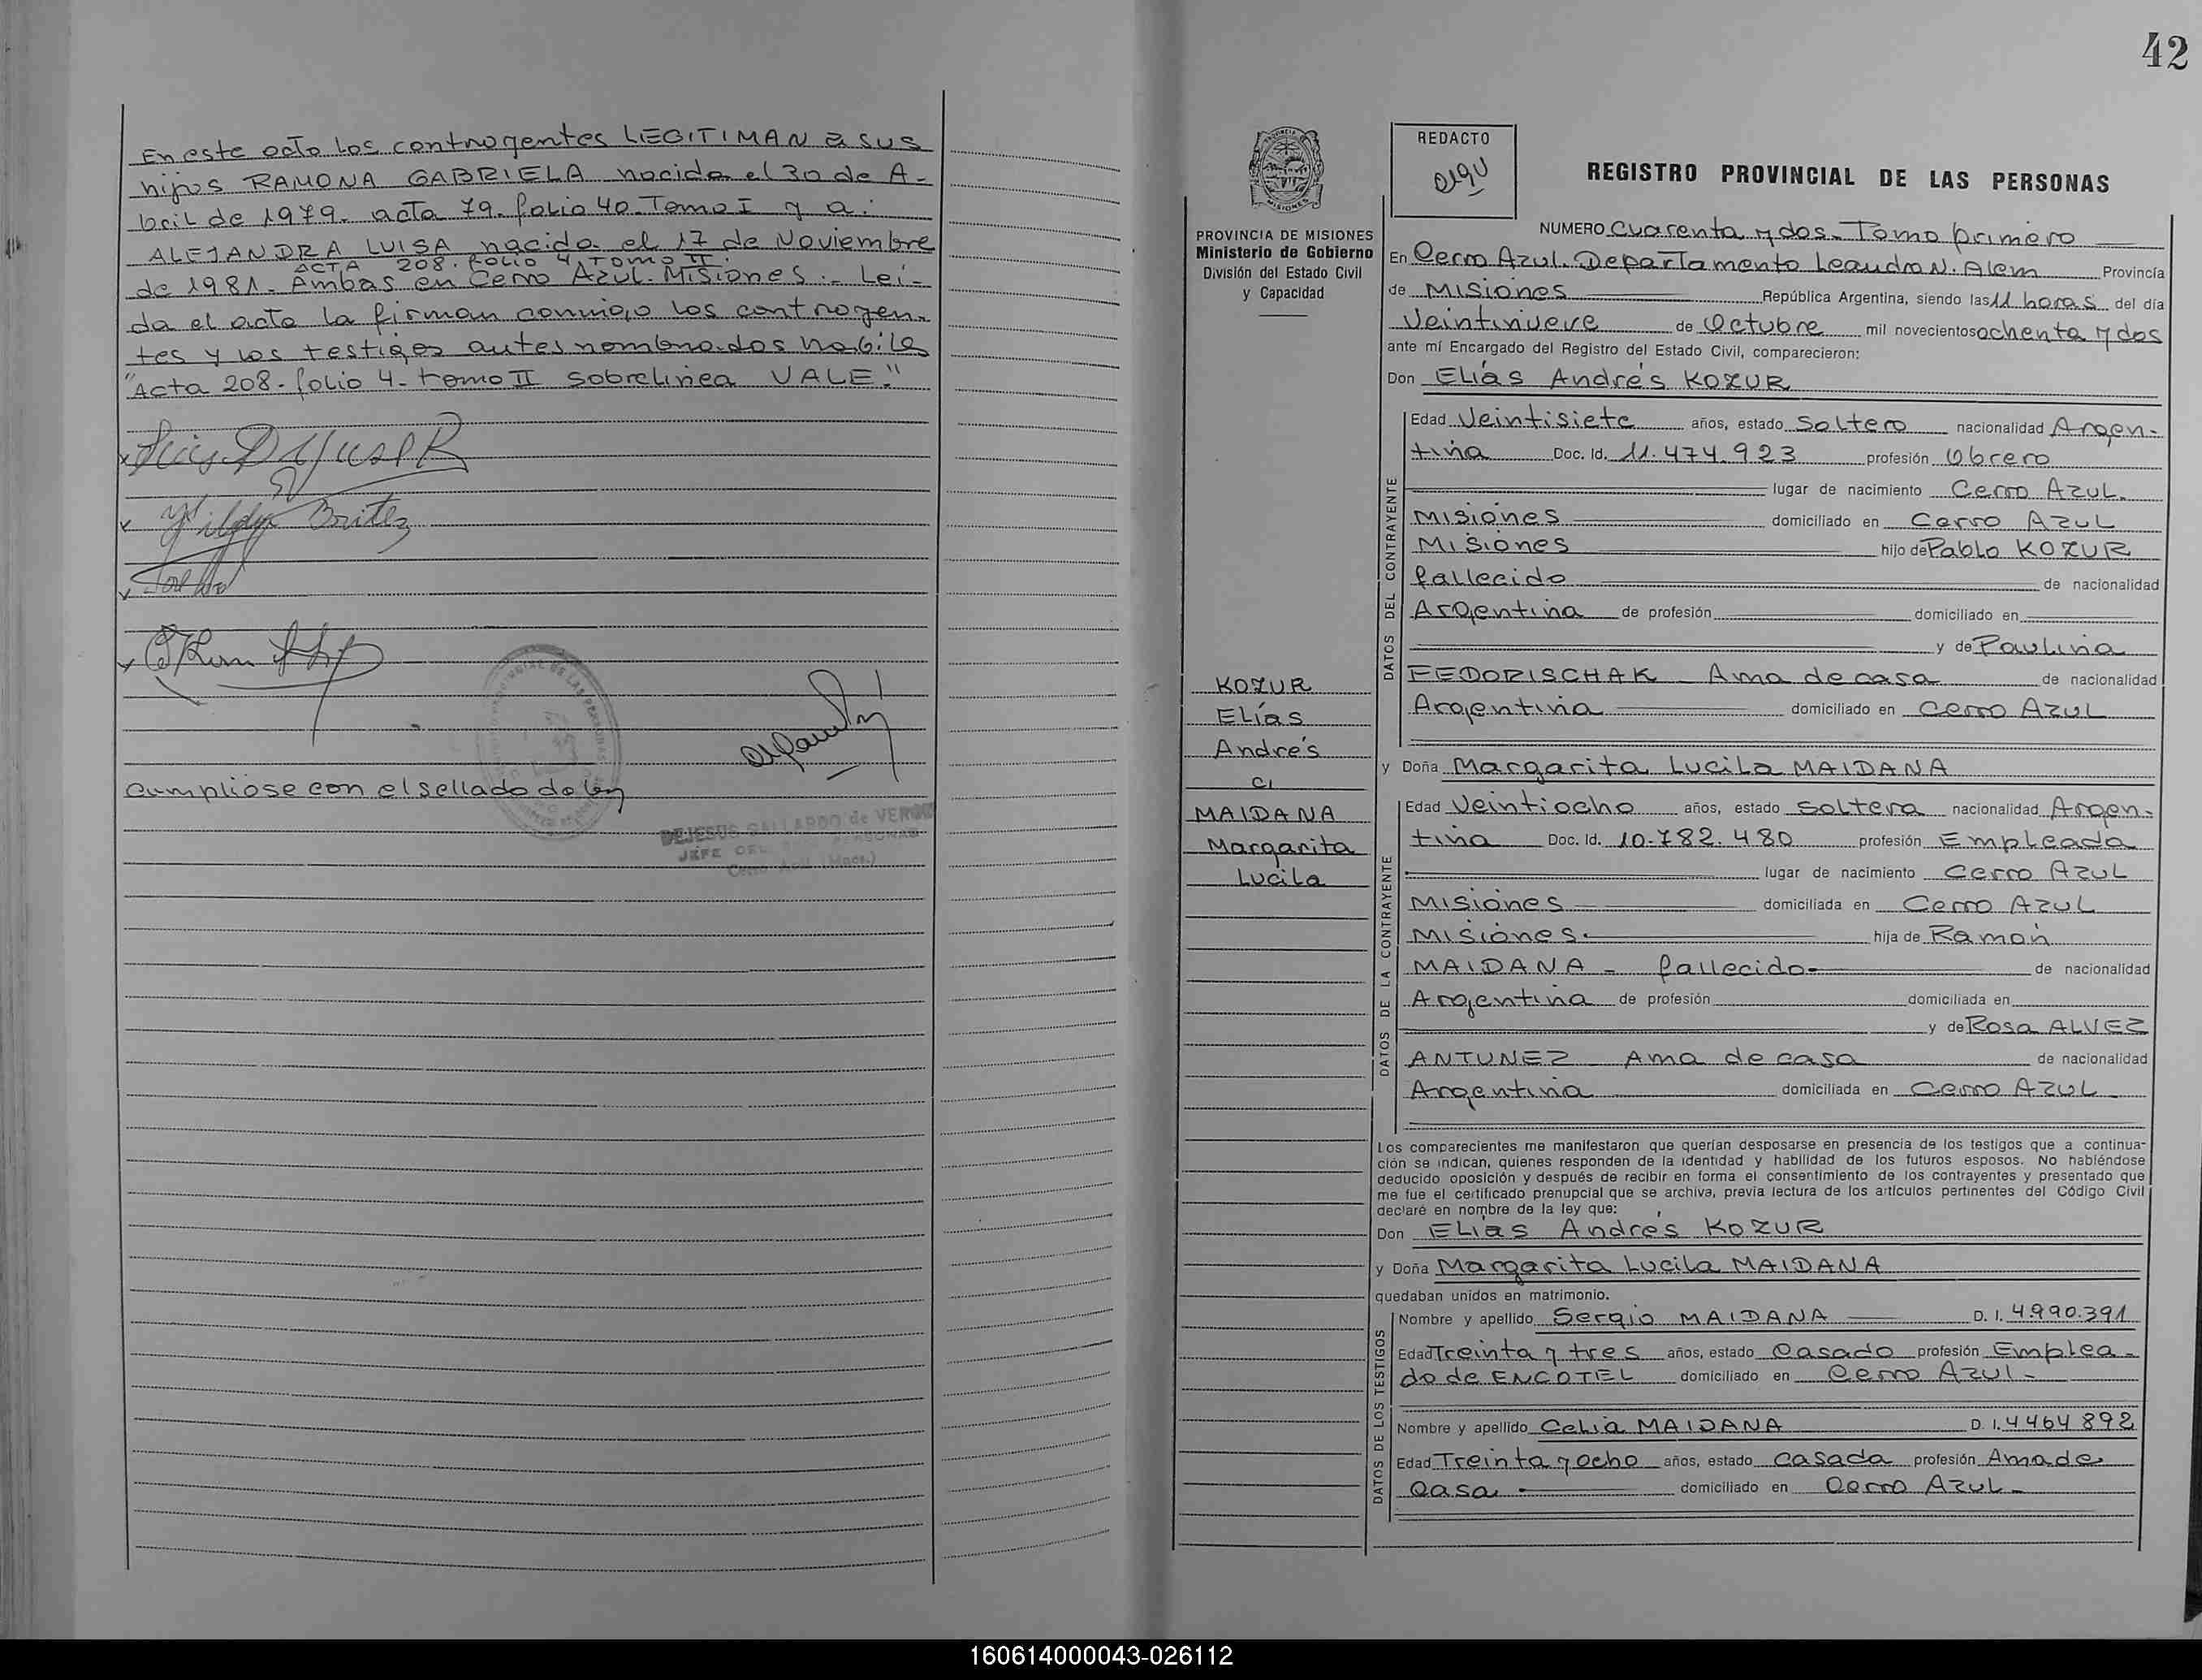 En este acto los contrayentes LEGITIMAN a sus
hijos RAMONA GABRIELA nacida el 30 de A-
bril de 1979. acta 79. folio 40. Tomo I y a:
ALEJANDRA LUISA nacida el 17 de Noviembre
ACTA 208. folio 4. Tomo II.
de 1981. Ambas en Cerro Azul. Misiones.- Leí-
da el acta la firman conmigo los contrayen-
tes y los testigos antes nombrados habiles
"Acta 208- folio 4- tomo II sobrelinea VALE."
Britez
cumpliose con el sellado de ley
DEJESUS GALLARDO de
JEFE DEL PERSONAS
42
REDACTO
REGISTRO PROVINCIAL DE LAS PERSONAS
PROVINCIA DE MISIONES
Ministerio de Gobierno
División del Estado Civil
y Capacidad
KOZUR
Elías
Andrés
c/
MAIDANA
Margarita
Lucila
NUMERO Cuarenta y dos. Tomo primero
En Cerro Azul. Departamento Leandro N. Alem Provincia
de Misiones República Argentina, siendo las 11 horas del día
Veintinueve de Octubre mil novecientos ochenta y dos
ante mí Encargado del Registro del Estado Civil, comparecieron:
Don Elías Andrés KOZUR
DATOS DEL CONTRAYENTE
Edad Veintisiete años, estado Soltero nacionalidad Argen-
tina Doc. Id. 11.474.923 profesión Obrero
lugar de nacimiento Cerro Azul.
Misiones domiciliado en Cerro Azul
Misiones hijo de Pablo KOZUR
fallecido de nacionalidad
Argentina de profesión domiciliado en
y de Paulina
FEDORISCHAK - Ama de casa de nacionalidad
Argentina domiciliado en Cerro Azul
y Doña Margarita Lucila MAIDANA
DATOS DE LA CONTRAYENTE
Edad Veintiocho años, estado Soltera nacionalidad Argen-
tina Doc. Id. 10.782.480 profesión Empleada
lugar de nacimiento Cerro Azul
Misiones domiciliada en Cerro Azul
Misiones. hija de Ramón
MAIDANA - fallecido- de nacionalidad
Argentina de profesión domiciliada en
y de Rosa ALVEZ
ANTUNEZ Ama de casa de nacionalidad
Argentina domiciliada en Cerro Azul
Los comparecientes me manifestaron que querían desposarse en presencia de los testigos que a continua-
ción se indican, quienes responden de la identidad y habilidad de los futuros esposos. No habiéndose
deducido oposición y después de recibir en forma el consentimiento de los contrayentes y presentado que
me fue el certificado prenupcial que se archiva, previa lectura de los artículos pertinentes del Código Civil
declaré en nombre de la ley que:
Don Elías Andrés KOZUR
y Doña Margarita Lucila MAIDANA
quedaban unidos en matrimonio.
DATOS DE LOS TESTIGOS
Nombre y apellido Sergio MAIDANA D. I. 4.990.391
Edad Treinta y tres años, estado Casado profesión Emplea-
do de ENCOTEL domiciliado en Cerro Azul-
Nombre y apellido Celia MAIDANA D. I. 4464892
Edad Treinta y ocho años, estado casada profesión Ama de
Casa domiciliado en Cerro Azul-
160614000043-026112